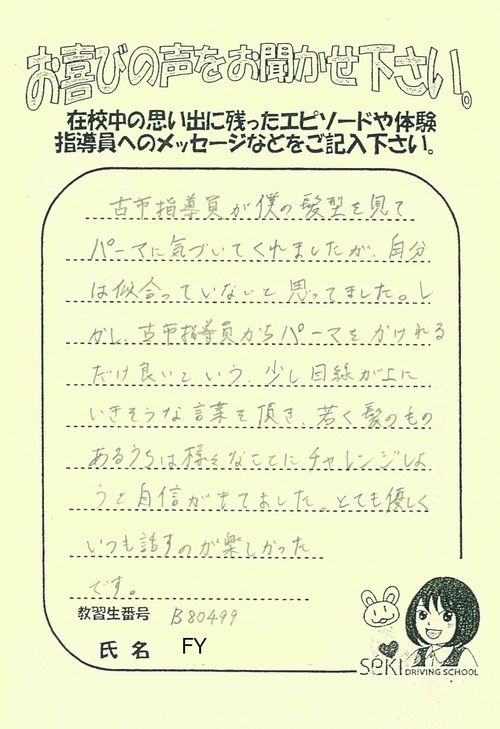 お喜びの声をお聞かせ下さい。
在校中の思い出に残ったエピソードや体験
指導員へのメッセージなどをご記入下さい。
古市指導員が僕の髪型を見て
パーマに気づいてくれましたが、自分
は似合っていないと思ってました。し
かし、古市指導員からパーマをかけれる
だけ良いという、少し目線が上に
いきそうな言葉を頂き、若く髪のもの
あるうちは様々なことにチャレンジしよ
うと自信がもてました。とても優しく
いつも話すのが楽しかった
です。
教習生番号 B80499
氏名 FY
SEKI DRIVING SCHOOL